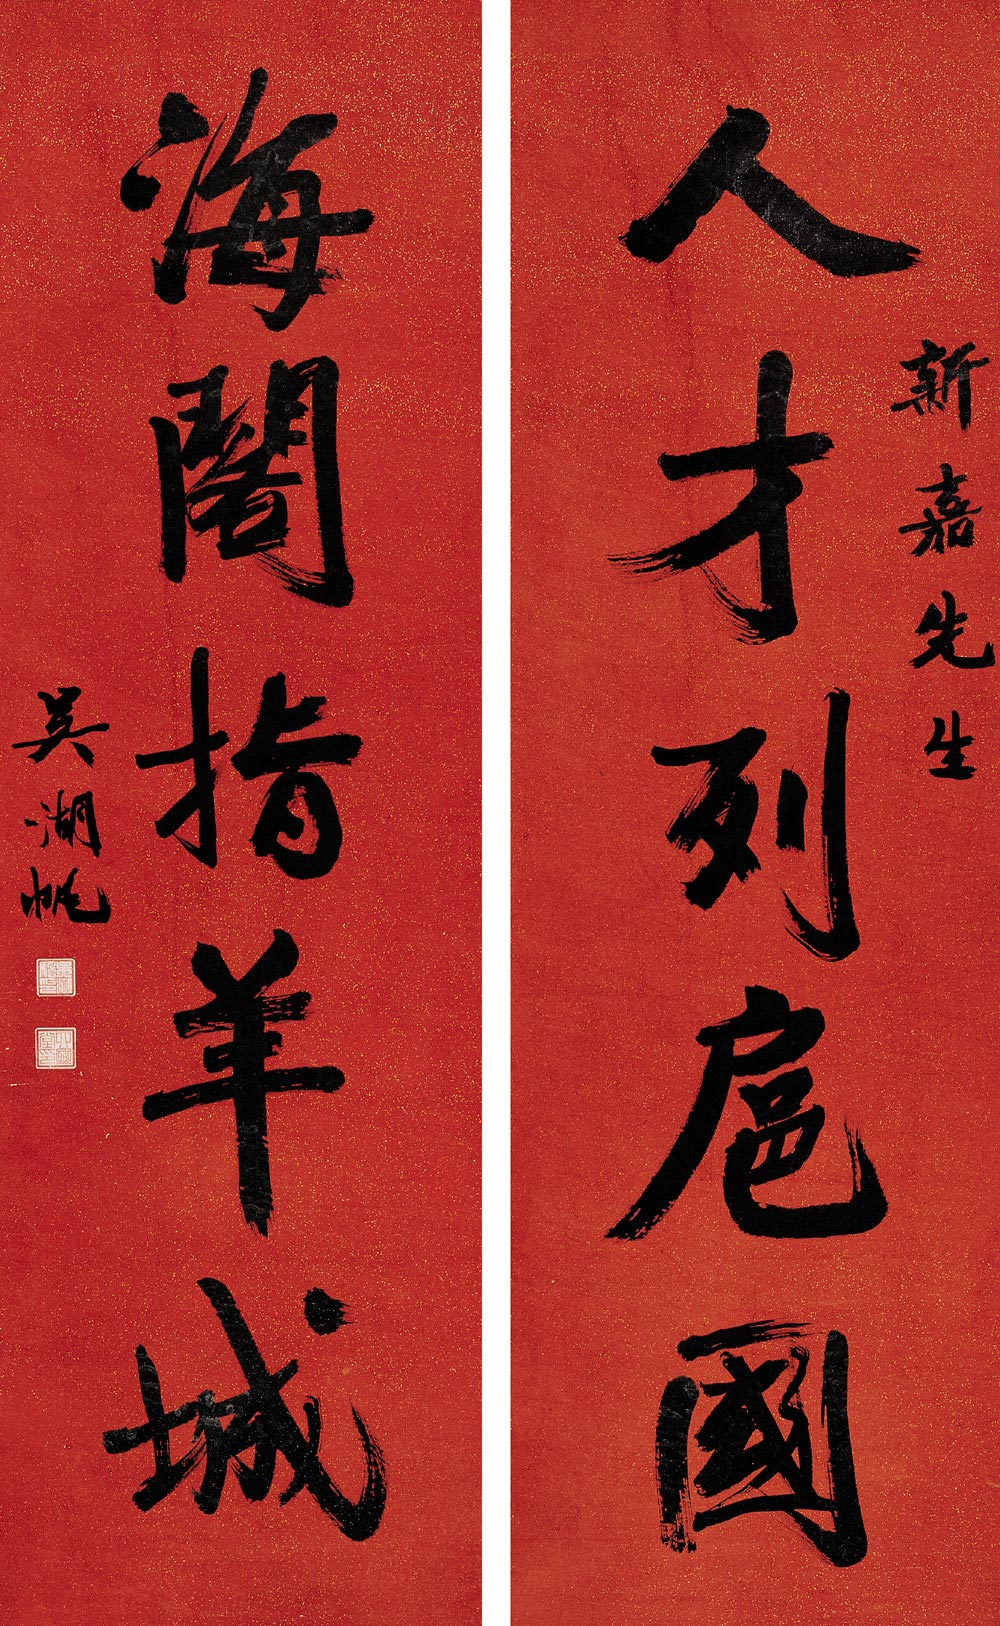 人才列扈國
新嘉先生
海闊指羊城
吳湖帆